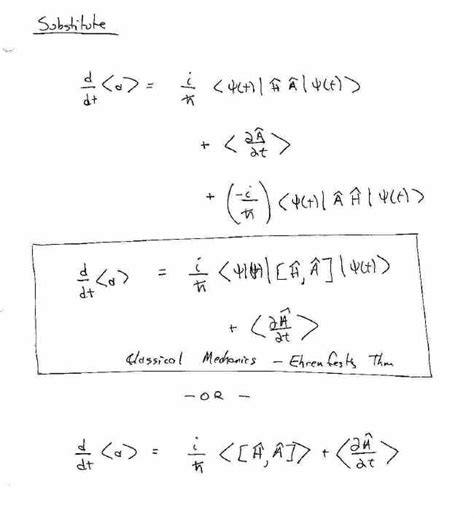 Substitute
d/dt <a> = i/ħ <ψ(t)| Ĥ Â |ψ(t)>
+ <∂Â/∂t>
+ (-i/ħ) <ψ(t)| Â Ĥ |ψ(t)>
d/dt <a> = i/ħ <ψ(t)| [Ĥ, Â] |ψ(t)>
+ <∂Â/∂t>
Classical Mechanics - Ehrenfests Thm
- OR -
d/dt <a> = i/ħ <[Ĥ, Â]> + <∂Â/∂t>